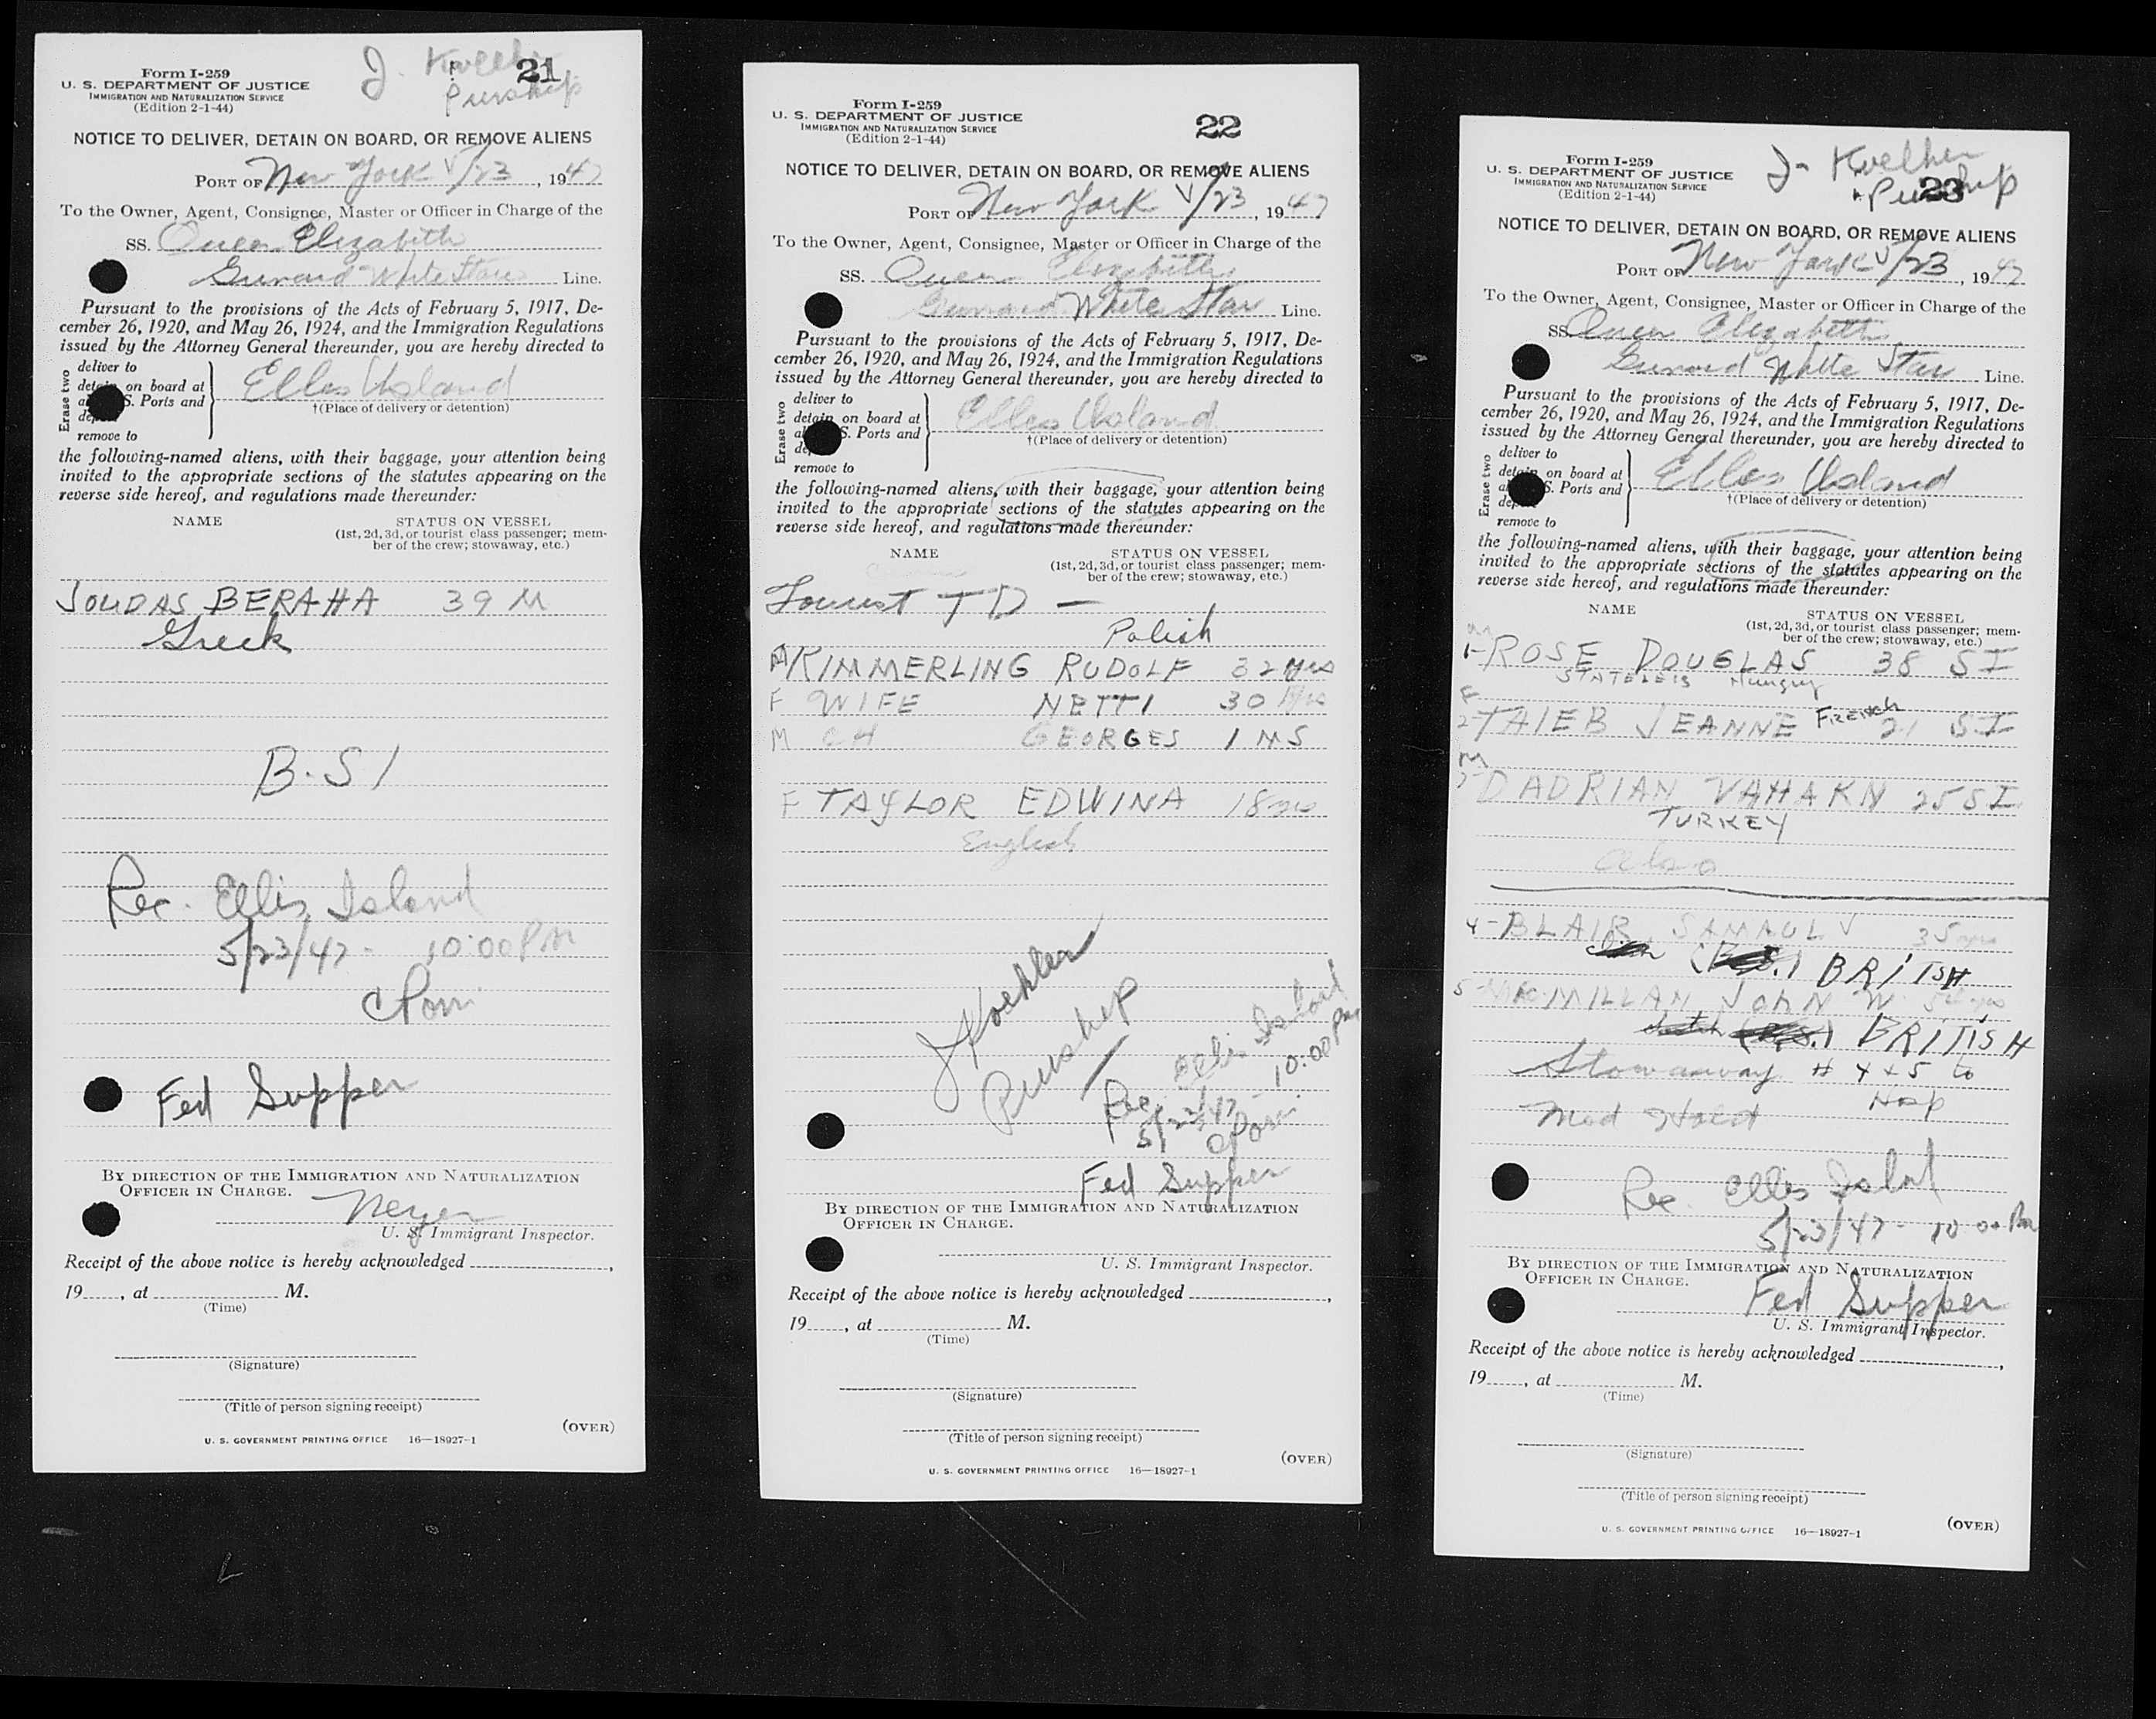 J.
21
Form I-259
U. S. DEPARTMENT OF JUSTICE
IMMIGRATION AND NATURALIZATION SERVICE
(Edition 2-1-44)
NOTICE TO DELIVER, DETAIN ON BOARD, OR REMOVE ALIENS
PORT OF New York V/23, 1947
To the Owner, Agent, Consignee, Master or Officer in Charge of the
SS. Queen Elizabeth
Cunard White Star Line.
Pursuant to the provisions of the Acts of February 5, 1917, De-
cember 26, 1920, and May 26, 1924, and the Immigration Regulations
issued by the Attorney General thereunder, you are hereby directed to
Erase two
deliver to
detain on board at
S. Ports and
remove to
Ellis Island
†(Place of delivery or detention)
the following-named aliens, with their baggage, your attention being
invited to the appropriate sections of the statutes appearing on the
reverse side hereof, and regulations made thereunder:
NAME STATUS ON VESSEL
(1st, 2d, 3d, or tourist class passenger; mem-
ber of the crew; stowaway, etc.)
JOUDAS BERAHA 39 M
Greek
B.SI
Rec. Ellis Island
5/23/47 - 10:00 PM
Fed Supper
BY DIRECTION OF THE IMMIGRATION AND NATURALIZATION
OFFICER IN CHARGE.
Meyer
U. S. Immigrant Inspector.
Receipt of the above notice is hereby acknowledged
19, at M.
(Time)
(Signature)
(Title of person signing receipt)
(OVER)
U. S. GOVERNMENT PRINTING OFFICE 16—18927-1
Form I-259
U. S. DEPARTMENT OF JUSTICE
IMMIGRATION AND NATURALIZATION SERVICE
(Edition 2-1-44)
22
NOTICE TO DELIVER, DETAIN ON BOARD, OR REMOVE ALIENS
PORT OF New York V/23, 1947
To the Owner, Agent, Consignee, Master or Officer in Charge of the
SS. Queen Elizabeth
Cunard White Star Line.
Pursuant to the provisions of the Acts of February 5, 1917, De-
cember 26, 1920, and May 26, 1924, and the Immigration Regulations
issued by the Attorney General thereunder, you are hereby directed to
Erase two
deliver to
detain on board at
S. Ports and
remove to
Ellis Island
†(Place of delivery or detention)
the following-named aliens, with their baggage, your attention being
invited to the appropriate sections of the statutes appearing on the
reverse side hereof, and regulations made thereunder:
NAME STATUS ON VESSEL
(1st, 2d, 3d, or tourist class passenger; mem-
ber of the crew; stowaway, etc.)
Tourist T D —
Polish
M KIMMERLING RUDOLF 32 yrs
F WIFE NETTI 30 yrs
M CH GEORGES 1 MS
F TAYLOR EDWINA 18 yrs
English
J Koehler
Rec. Ellis Island
5/23/47 - 10:00 PM
Fed Supper
BY DIRECTION OF THE IMMIGRATION AND NATURALIZATION
OFFICER IN CHARGE.
U. S. Immigrant Inspector.
Receipt of the above notice is hereby acknowledged
19, at M.
(Time)
(Signature)
(Title of person signing receipt)
(OVER)
U. S. GOVERNMENT PRINTING OFFICE 16—18927-1
J.
23
Form I-259
U. S. DEPARTMENT OF JUSTICE
IMMIGRATION AND NATURALIZATION SERVICE
(Edition 2-1-44)
NOTICE TO DELIVER, DETAIN ON BOARD, OR REMOVE ALIENS
PORT OF New York V/23, 1947
To the Owner, Agent, Consignee, Master or Officer in Charge of the
SS. Queen Elizabeth
Cunard White Star Line.
Pursuant to the provisions of the Acts of February 5, 1917, De-
cember 26, 1920, and May 26, 1924, and the Immigration Regulations
issued by the Attorney General thereunder, you are hereby directed to
Erase two
deliver to
detain on board at
S. Ports and
remove to
Ellis Island
†(Place of delivery or detention)
the following-named aliens, with their baggage, your attention being
invited to the appropriate sections of the statutes appearing on the
reverse side hereof, and regulations made thereunder:
NAME STATUS ON VESSEL
(1st, 2d, 3d, or tourist class passenger; mem-
ber of the crew; stowaway, etc.)
1- ROSE DOUGLAS 38 SI
F
2- TAIEB JEANNE FRENCH 21 SI
M
3- DADRIAN VAHAKN 25 SI
TURKEY
also
4- BLAIR 35 yrs
BRITISH
5- MACMILLAN JOHN W.
BRITISH
Stowaway # 4 + 5 to
Hosp
Med Hold
Rec. Ellis Island
5/23/47 - 10 00 PM
BY DIRECTION OF THE IMMIGRATION AND NATURALIZATION
OFFICER IN CHARGE.
Fed Supper
U. S. Immigrant Inspector.
Receipt of the above notice is hereby acknowledged
19, at M.
(Time)
(Signature)
(Title of person signing receipt)
(OVER)
U. S. GOVERNMENT PRINTING OFFICE 16—18927-1